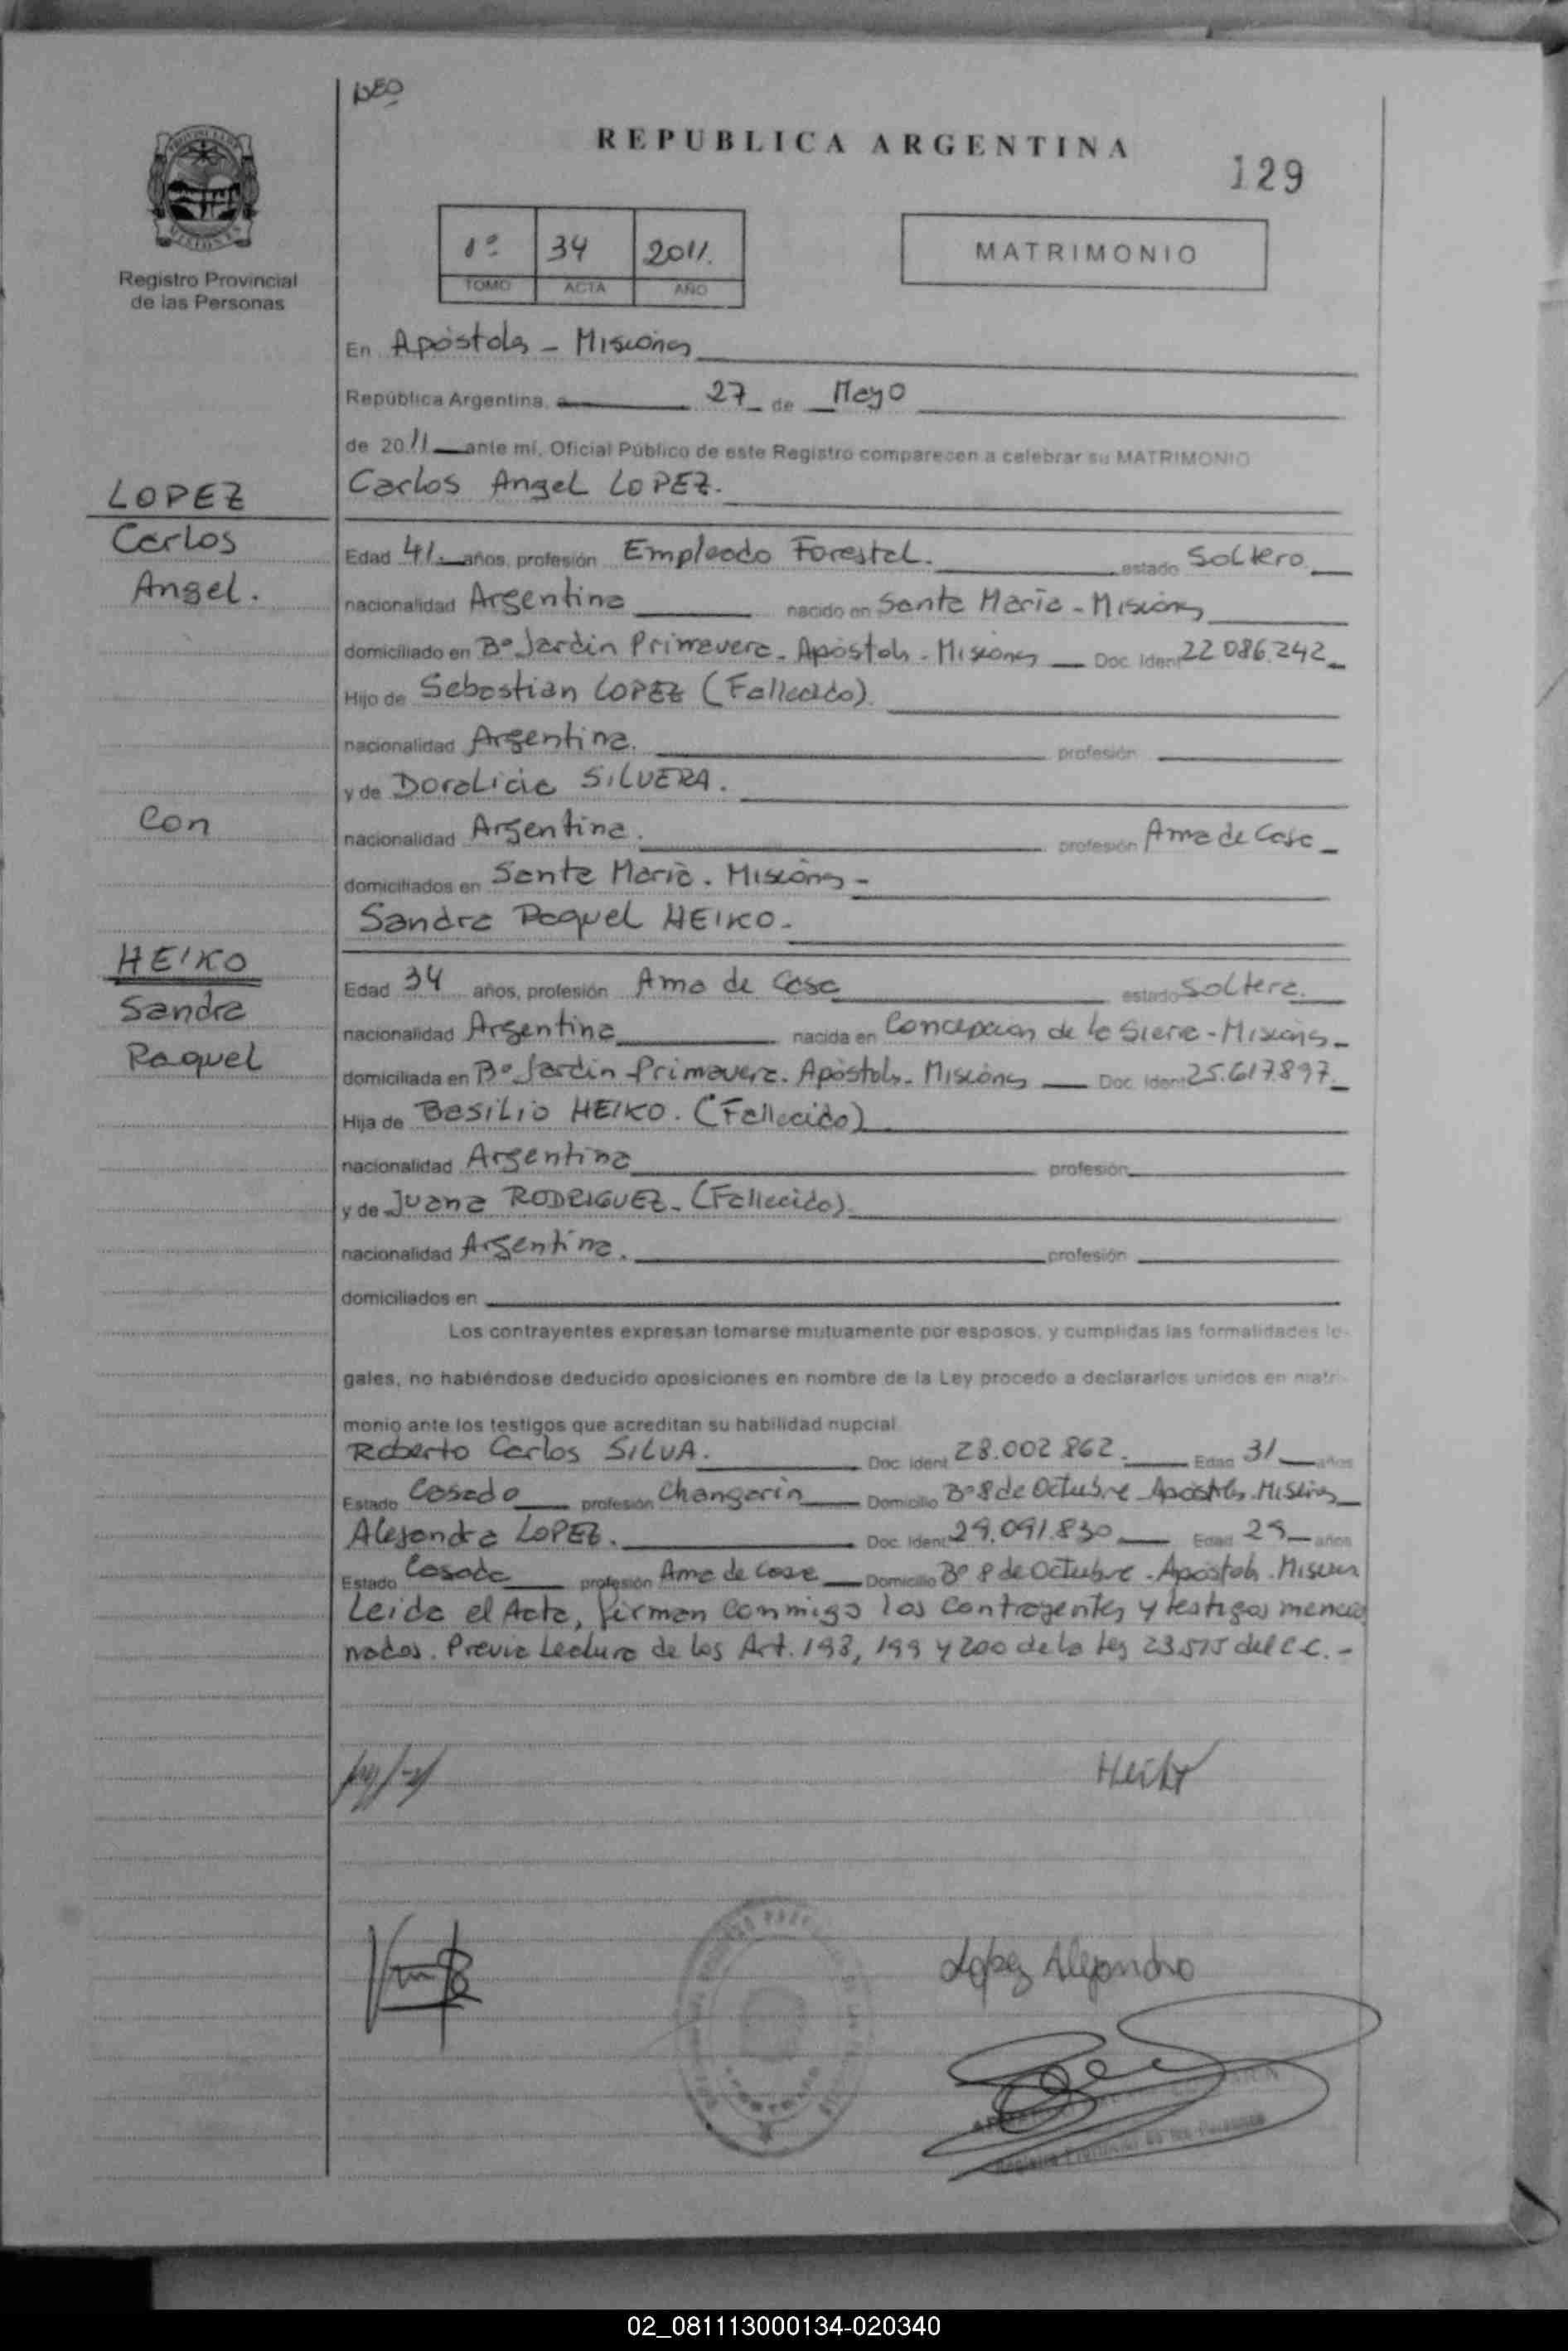 DEO
REPUBLICA ARGENTINA
129
Registro Provincial
de las Personas
1º 34 2011.
TOMO ACTA AÑO
MATRIMONIO
En Apóstoles - Misiones
República Argentina, a 27 de Mayo
de 2011 ante mí, Oficial Público de este Registro comparecen a celebrar su MATRIMONIO
Carlos Angel LOPEZ.
LOPEZ
Carlos
Angel.
Edad 41 años, profesión Empleado Forestal. estado Soltero
nacionalidad Argentina nacido en Santa María - Misiones
domiciliado en Bº Jardín Primavera - Apóstoles - Misiones Doc. Ident 22 086.242
Hijo de Sebastián LOPEZ (Fallecido).
nacionalidad Argentina. profesión
y de Doralicia SILVERA.
Con
nacionalidad Argentina. profesión Ama de Casa
domiciliados en Santa María. Misiones -
Sandra Raquel HEIKO.
HEIKO
Sandra
Raquel
Edad 34 años, profesión Ama de Casa estado Soltera.
nacionalidad Argentina nacida en Concepción de la Sierra - Misiones
domiciliada en Bº Jardín Primavera. Apóstoles - Misiones Doc. Ident 25.617.897
Hija de Basilio HEIKO. (Fallecido)
nacionalidad Argentina profesión
y de Juana RODRIGUEZ - (Fallecido).
nacionalidad Argentina. profesión
domiciliados en
Los contrayentes expresan tomarse mutuamente por esposos, y cumplidas las formalidades le-
gales, no habiéndose deducido oposiciones en nombre de la Ley procedo a declararlos unidos en matri-
monio ante los testigos que acreditan su habilidad nupcial
Roberto Carlos SILVA. Doc. Ident 28.002 862. Edad 31 años
Estado Casado profesión Changarín Domicilio Bº 8 de Octubre - Apóstoles. Misiones
Alejandra LOPEZ. Doc. Ident 29.091.830 Edad 29 años
Estado Casada profesión Ama de Casa Domicilio Bº 8 de Octubre - Apóstoles. Misiones
Leída el Acta, firman conmigo los contrayentes y testigos mencio
nados. Previa Lectura de los Art. 198, 199 y 200 de la Ley 23.515 del C.C. -
Heiko
Lopez Alejandra
Registro Provincial de las Personas
02_081113000134-020340